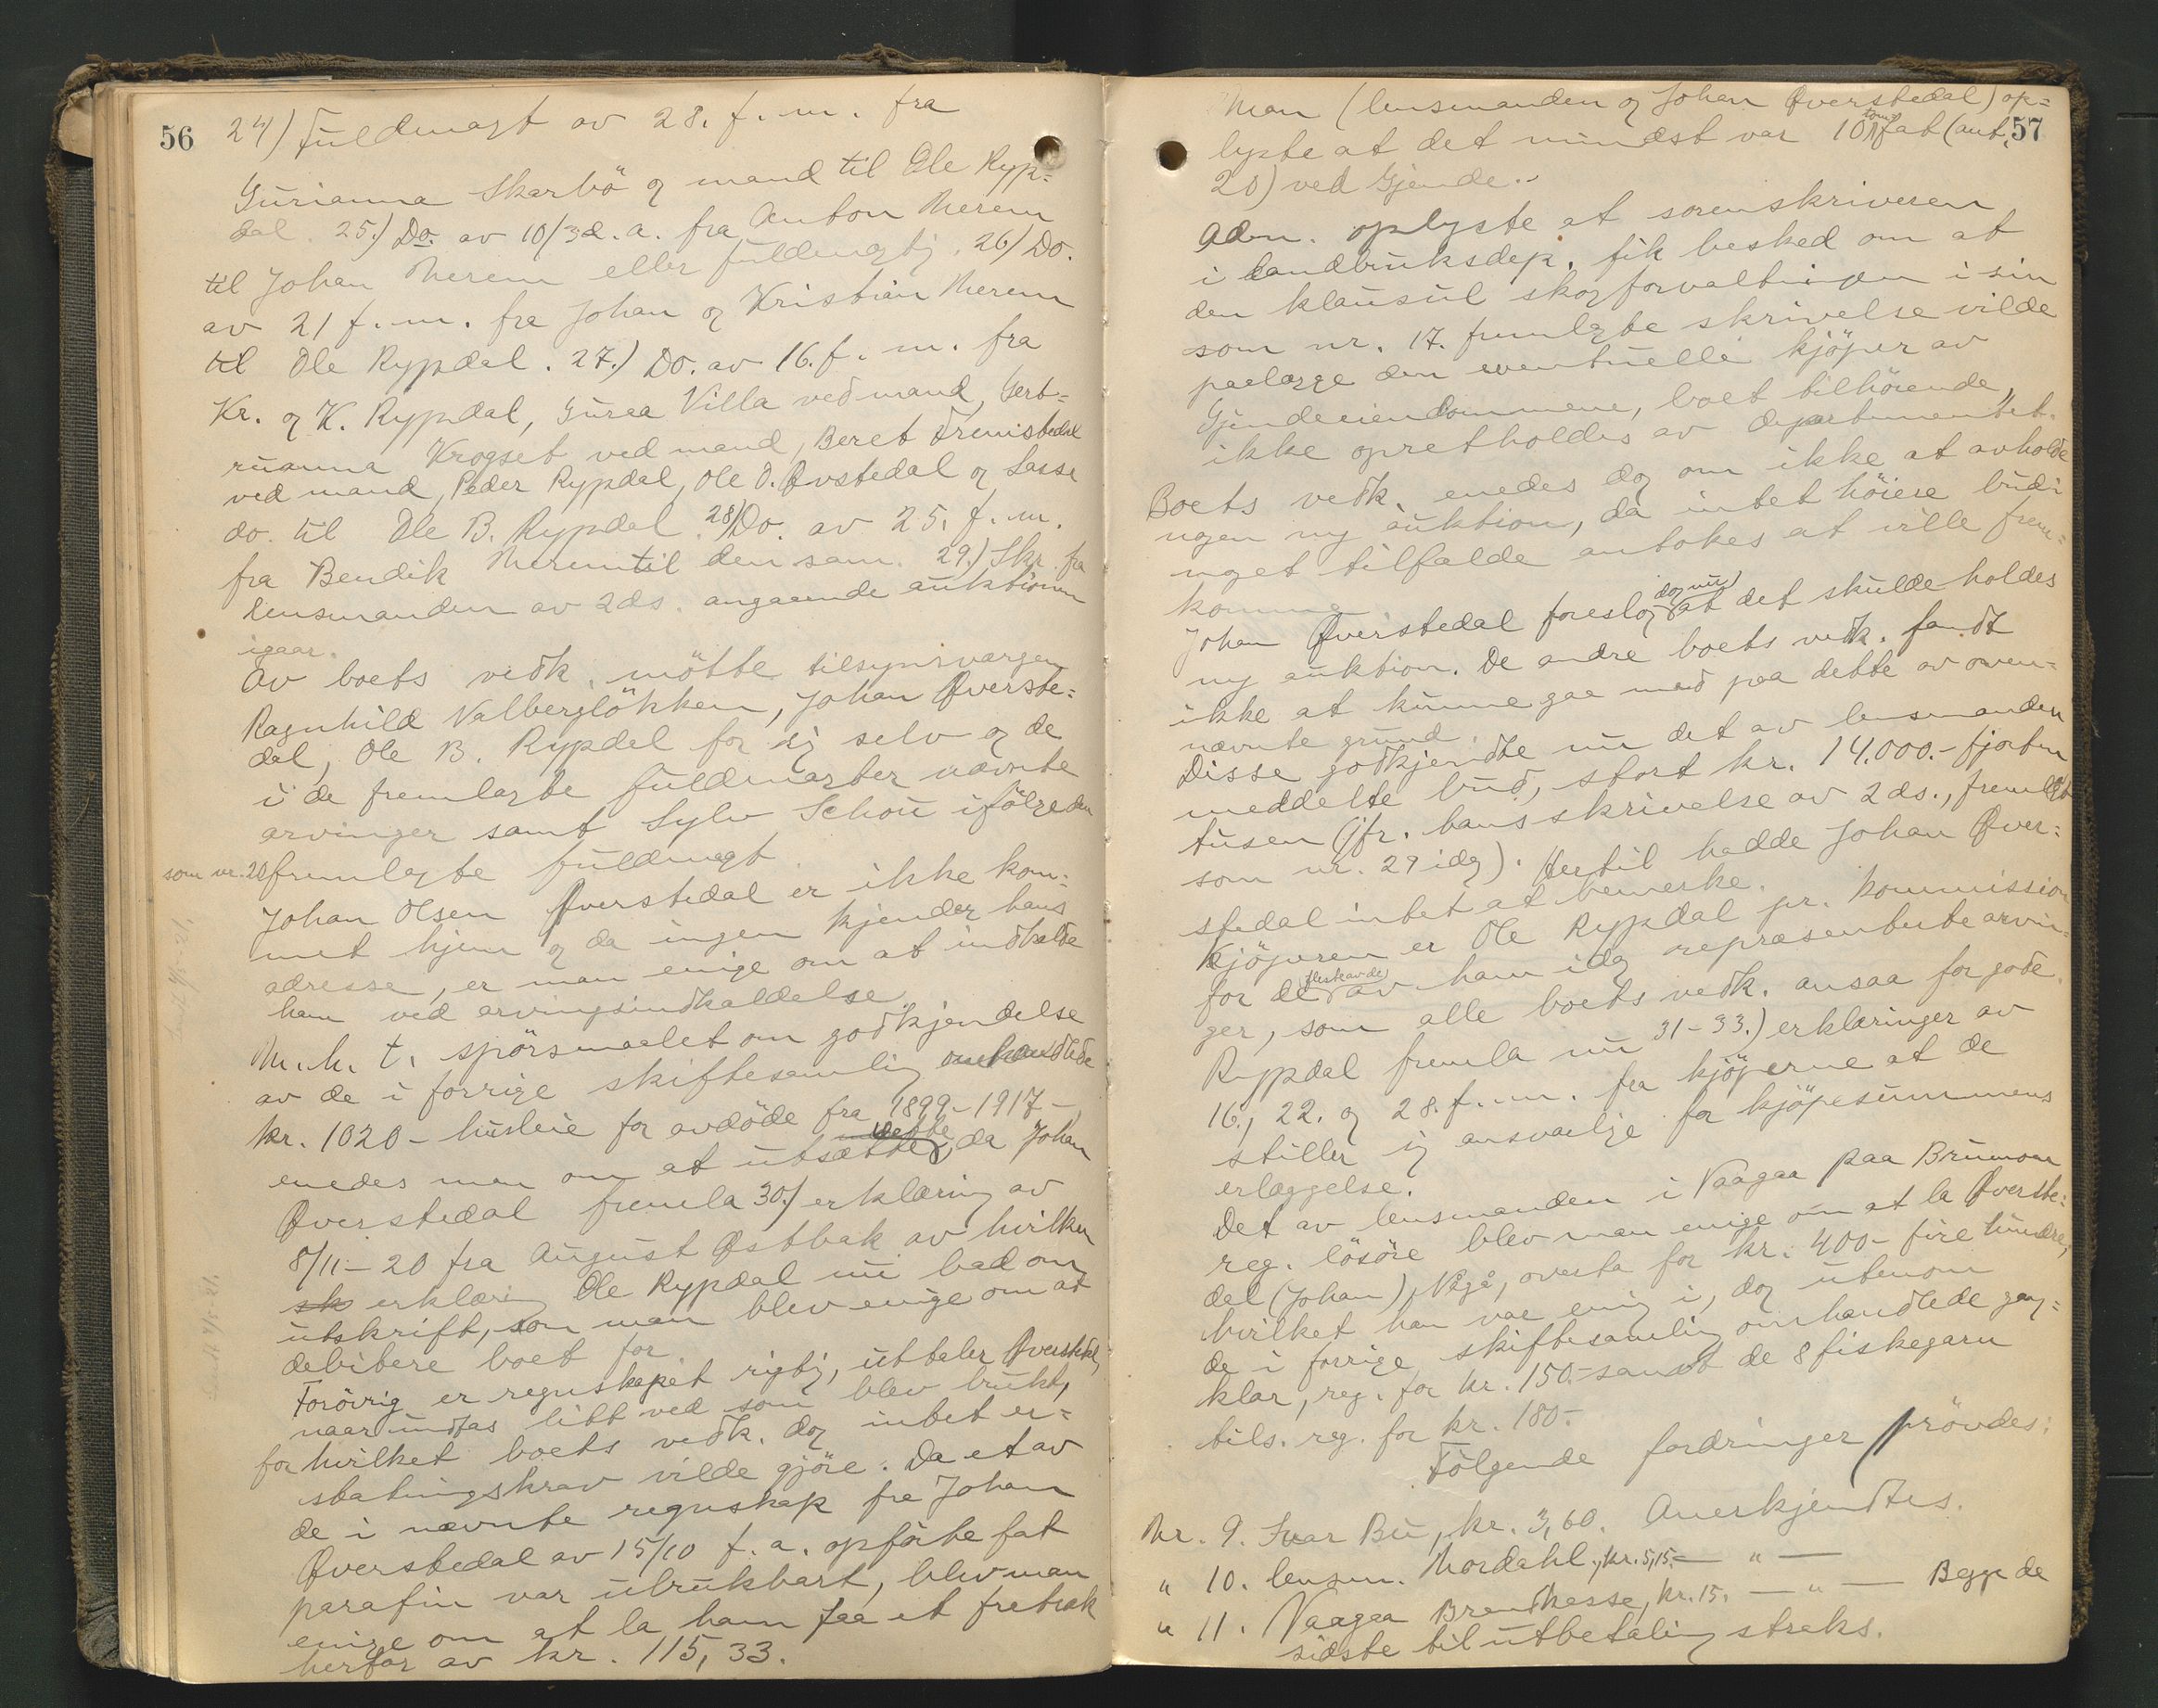 56
24) Fuldmagt av 28. f. m. fra
Gurianna Skarbö og mand til Ole Ryp=
dal. 25.) Do. av 10/3 d. a. fra Anton Merem
til Johan Merem eller fuldmegtig. 26) Do.
av 21 f. m. fra Johan og Kristian Merem
til Ole Rypdal. 27.) Do. av 16. f. m. fra
Kr. og K. Rypdal, Guraa Villa ved mand, Gert=
ruanna Krogset ved mand, Beret Tremstedal
ved mand, Peder Rypdal, Ole O. Øvstedal og Lasse
do. til Ole B. Rypdal. 28) Do. av 25. f. m.
fra Bendik Merem til den sam. 29.) Skr. fra
lensmanden av 2 ds. angaaende auktionen
igaar.
Av boets vedk. mötte tilsynsvergen
Ragnhild Valberglökken, Johan Øverste=
dal, Ole B. Rypdal for sig selv og de
i de fremlagte fuldmagter nævnte
arvinger samt Sylv Schou ifölge den
som nr. 20 fremlagte fuldmagt.
Johan Olsen Øverstedal er ikke kom=
met hjem og da ingen kjender hans
adresse, er man enige om at indkalde
ham ved arvingsindkaldelse.
M. h. t. spörsmaalet om godkjendelse
av de i forrige skiftesamling omhandlede
kr. 1020 – husleie for avdöde fra 1899–1917 –,
enedes man om at utsætte dette, da Johan
Øverstedal fremla 30.) erklæring av
8/11–20 fra August Østbak av hvilken
sk erklæring Ole Rypdal nu bad om
utskrift, som man blev enige om at
debitere boet for.
Forövrig er regnskapet rigtig, uttaler Øverstedal,
naar undtas litt ved som blev brukt,
for hvilket boets vedk. dog intet er=
statningskrav vilde gjöre. Da et av
de i nævnte regnskap fra Johan
Øverstedal av 15/10 f. a. opförte fat
parafin var ubrukbart, blev man
enige om at la ham faa et fratræk
herfor av kr. 115,33.
57
Man (lensmanden og Johan Øverstedal) op=
lyste at det mindst var 10 tomfat (ant.
20) ved Gjende.
Adm. oplyste at sorenskriveren
i landbruksdep. fik besked om at
den klausul skogforvaltningen i sin
som nr. 17. fremlagte skrivelse vilde
paalægge den eventuelle kjöper av
Gjendeeiendommene, boet tilhörende,
ikke opretholdes av departementet.
Boets vedk. enedes dog om ikke at avholde
nogen ny auktion, da intet höiere bud i
noget tilfælde antokes at ville frem=
komme.
Johan Øverstedal foreslog dog nu at det skulde holdes
ny auktion. De andre boets vedk. fandt
ikke at kunne gaa med paa dette av oven=
nævnte grund.
Disse godkjendte nu det av lensmanden
meddelte bud, stort kr. 14.000.– fjorten
tusen (jfr. hans skrivelse av 2 ds., fremlagt
som nr. 29 idag). Hertil hadde Johan Øver=
stedal intet at bemerke.
Kjöperen er Ole Rypdal pr. kommission
for de fleste av de av ham idag repræsenterte arvin=
ger, som alle boets vedk. ansaa for gode.
Rypdal fremla nu 31–33.) erklæringer av
16., 22. og 28. f. m. fra kjöperne at de
stiller sig ansvarlige for kjöpesummens
erlæggelse.
Det av lensmanden i Vaagaa paa Brumoen
reg. lösöre blev man enige om at la Øverste=
dal (Johan), Vågå, overta for kr. 400– fire hundre,
hvilket han var enig i, dog utenom
de i forrige skiftesamling omhandlede gang=
klær, reg. for kr. 150.– samt de 8 fiskegarn
tils. reg. for kr. 180.–
Fölgende fordringer prövdes:
Nr. 9. Ivar Bu, kr. 3,60. Anerkjendtes.
" 10. lensm. Nordahl, kr. 5,15. — " —
" 11. Vaagaa Brandkasse, kr. 15. — " — Begge de
sidste til utbetaling straks.